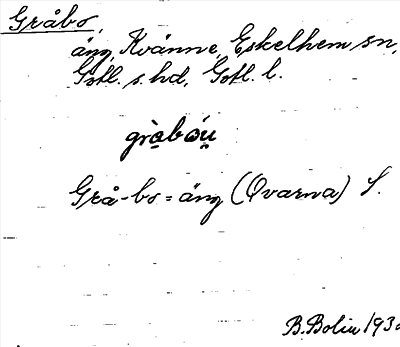 Gråbo,
äng, Kvänne, Eskelhem sn,
Gotl. s. hd, Gotl. l.
Grå-bo=äng (Qvarna) S.
B. Bolin